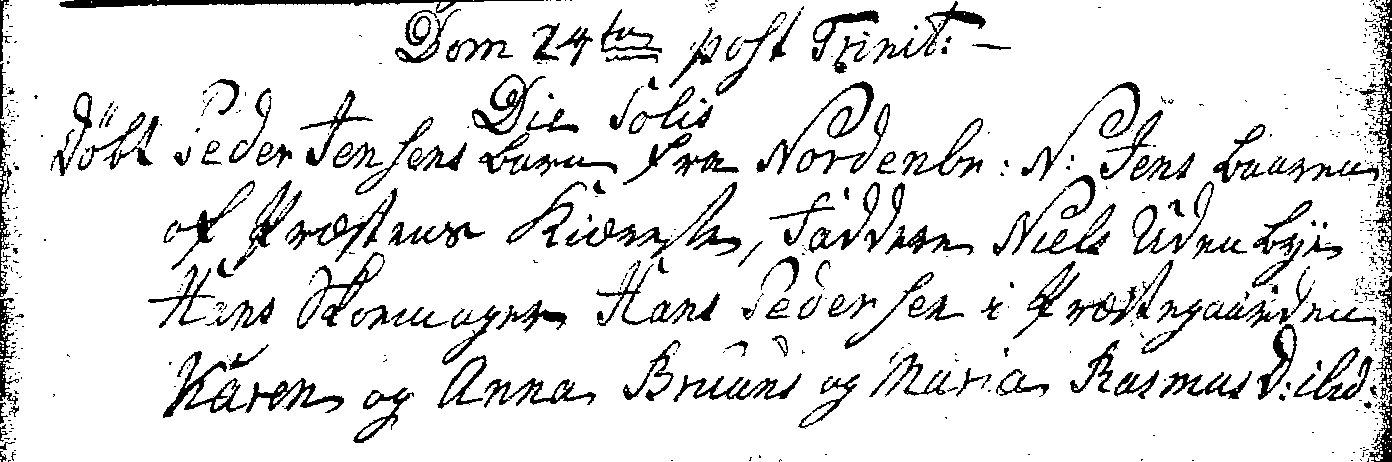 Dom 24tus post Trinit: –
Die Solis
Döbt Peder Jensens barn fra Nordenbr: N: Jens baaren
af Præstens Kiæreste, Faddere Niels Uden bye
Hans Skomager Hans Pedersen i Præstegaarden
Karen og Anna Bruuns og Maria Rasmus D: ibd: